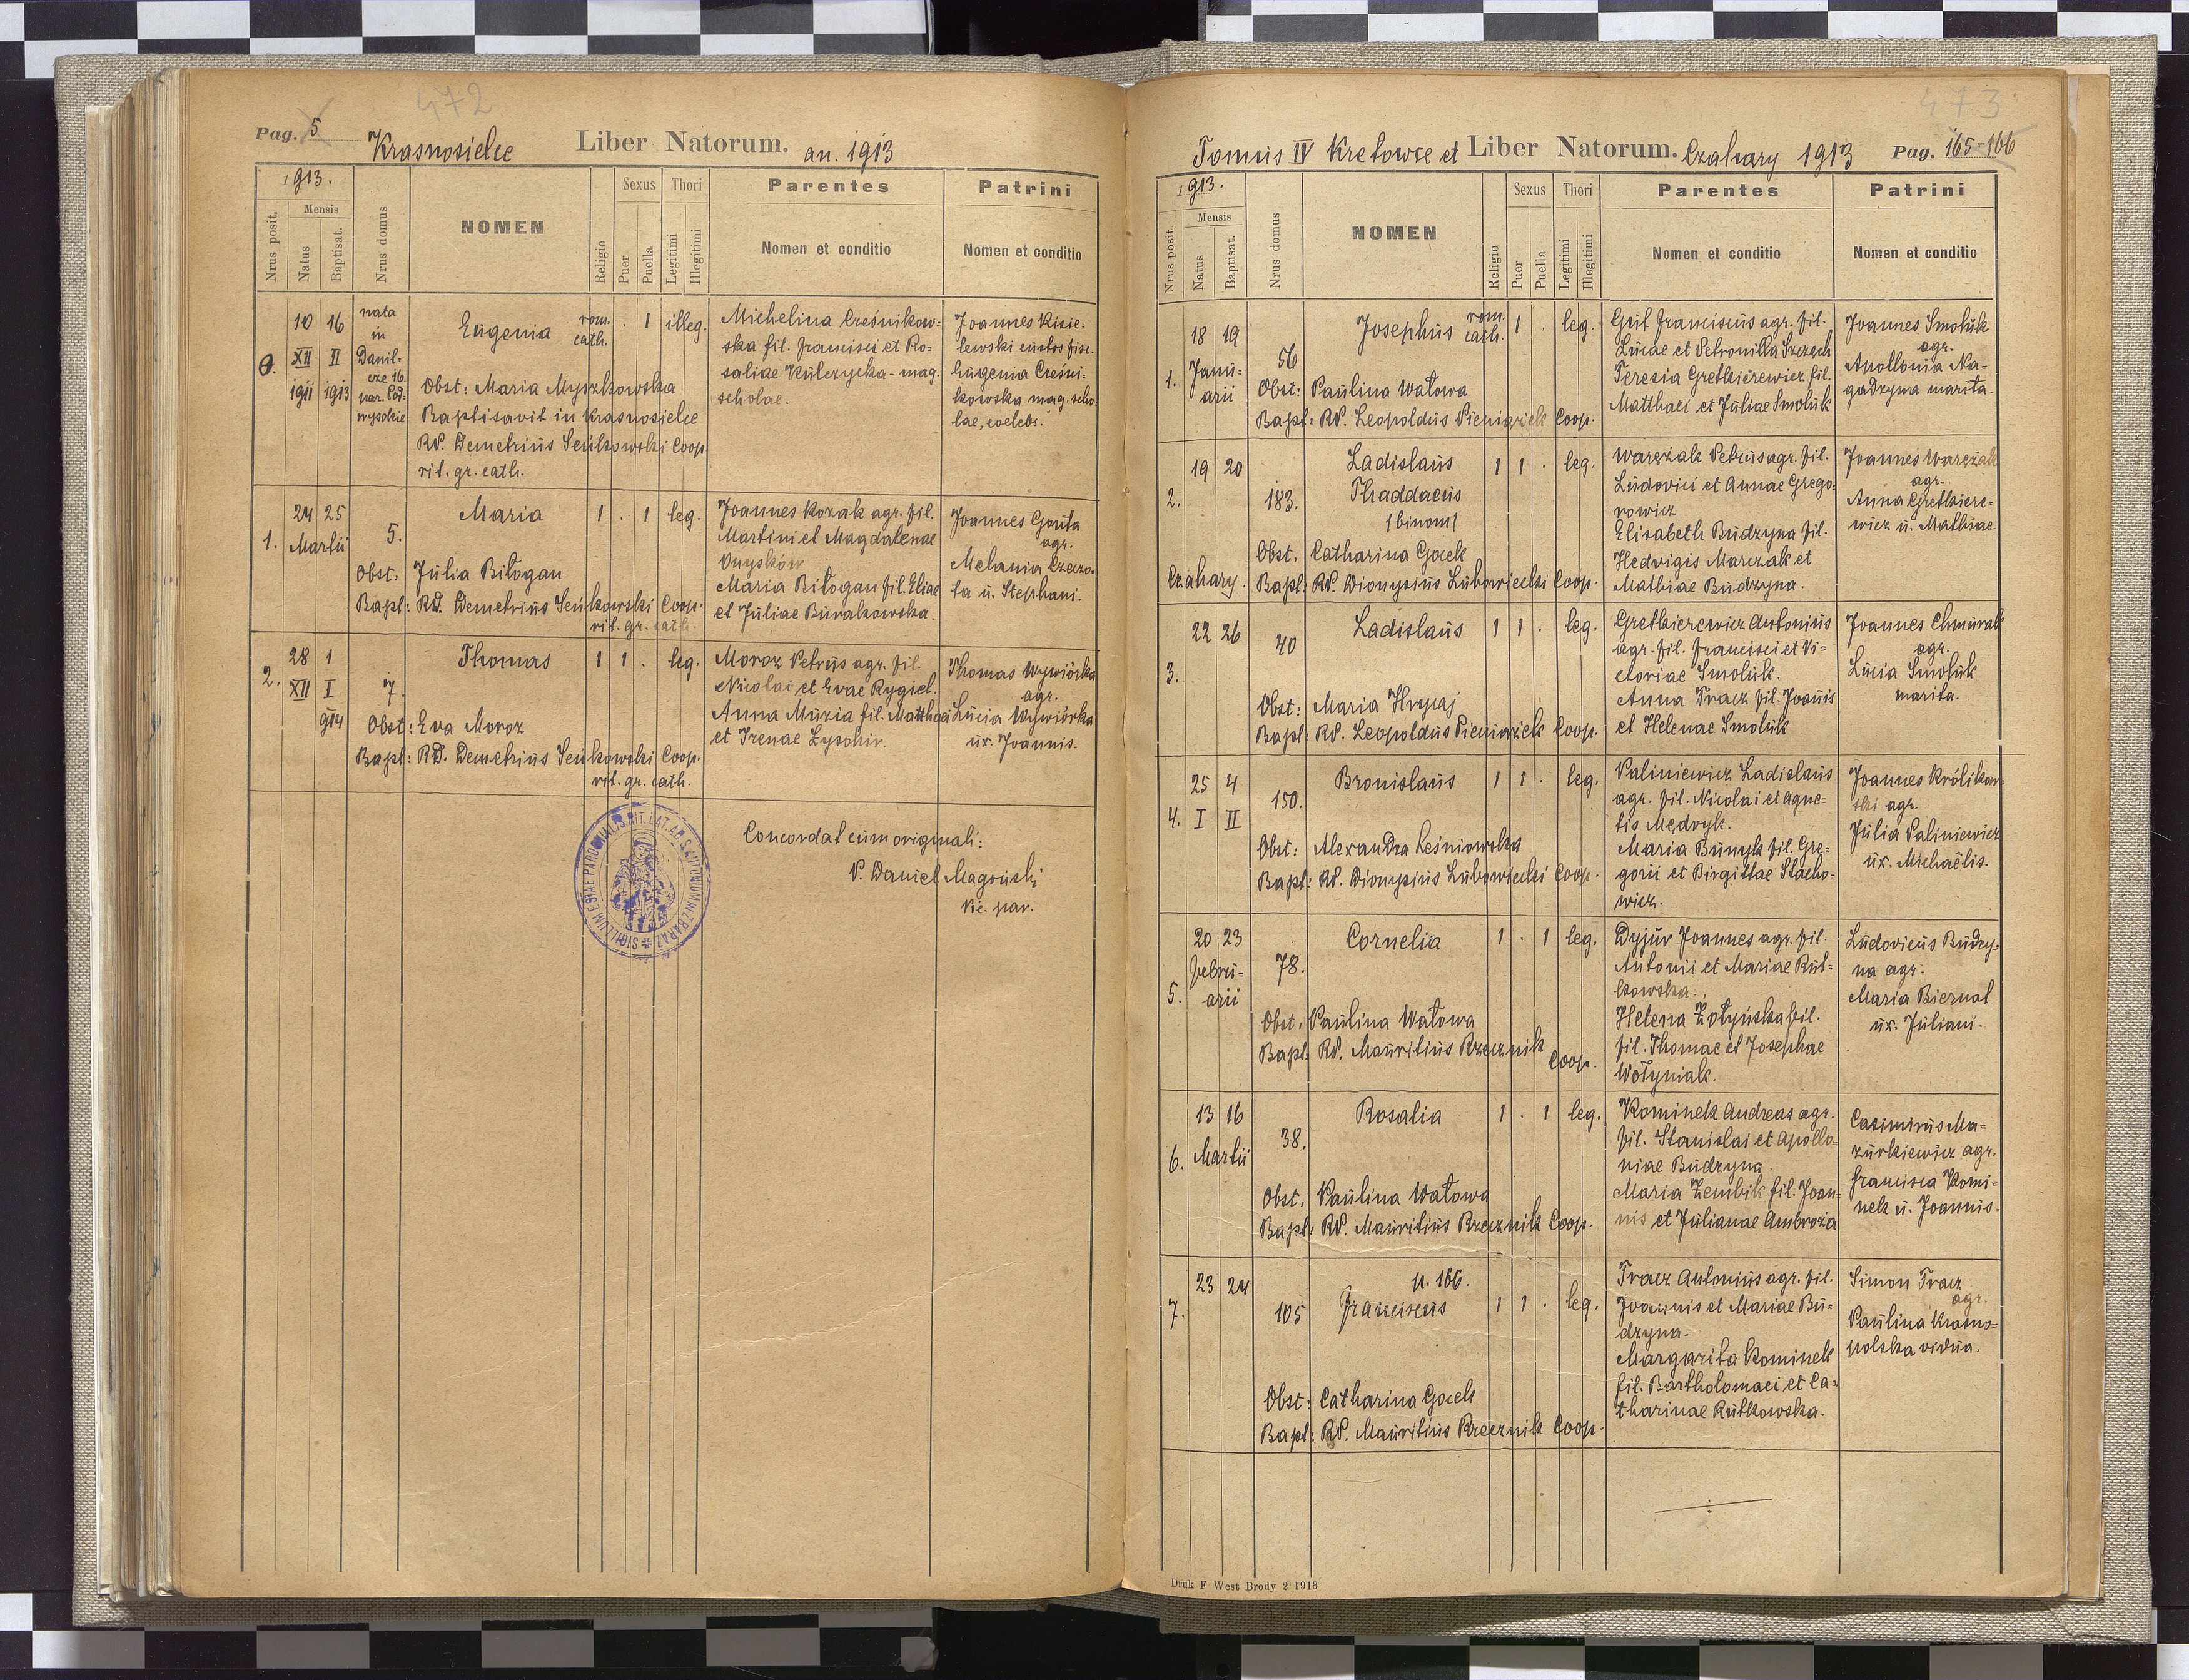 472
Pag. 5
Krasnosielce Liber Natorum. an. 1913
1913.
Nrus posit.
Mensis
Natus
Baptisat.
Nrus domus
NOMEN
Religio
Sexus
Puer
Puella
Thori
Legitimi
Illegitimi
Parentes
Nomen et conditio
Patrini
Nomen et conditio
10 16
XII II
1911 1913
nata
in
Danil-
cze 16.
par. Pod-
wysokie
Eugenia
rom.
cath.
. 1 illeg.
Obst: Maria Myszkowska
Baptisavit in Krasnosielce
RD. Demetrius Seńkowski Coop
rit. gr. cath.
Michelina Cześnikow-
ska fil. Francisci et Ro-
saliae Kulczycka - mag.
scholae.
Joannes Kisie-
lewski custos fisc.
Eugenia Cześni-
kowska mag. scho-
lae, coelebs.
1.
24 25
Martii
5.
Maria
1 . 1 leg.
Obst. Julia Biłogan
Bapt: RD. Demetrius Seńkowski Coop.
rit. gr. cath.
Joannes Kozak agr. fil.
Martini et Magdalenae
Onyśków
Maria Biłogan fil. Eliae
et Juliae Buralkowska.
Joannes Gouta
agr.
Melania Czeczo-
ta u. Stephani.
2.
28 1
XII I
914
7.
Thomas
1 1 . leg.
Obst: Eva Moroz
Bapt: RD. Demetrius Seńkowski Coop.
rit. gr. cath.
Moroz Petrus agr. fil.
Nicolai et Evae Rygiel.
Anna Muzia fil. Matthaei
et Irenae Łysohir.
Thomas Wywiórka
agr.
Lucia Wywiórka
ux. Joannis.
Concordat cum originali:
P. Daniel Magoński
Vic. par.
473
Tomus IV Kretowce et Liber Natorum. Czahary 1913 Pag. 165-166
1913.
Nrus posit
Mensis
Natus
Baptisat.
Nrus domus
NOMEN
Religio
Sexus
Puer
Puella
Thori
Legitimi
Illegitimi
Parentes
Nomen et conditio
Patrini
Nomen et conditio
1.
18 19
Janu-
arii
56
Josephus
rom.
cath.
1 . leg.
Obst: Paulina Watowa
Bapt: RP. Leopoldus Pieniążek Coop.
Gut Franciscus agr. fil.
Lucae et Petronilla Szczech
Teresia Gretkierewicz fil.
Matthaei et Juliae Smoluk
Joannes Smoluk
agr.
Apollonia Na-
gadzyna marita.
2.
19 20
183.
Ladislaus
Thaddaeus
/binom/
1 1 . leg.
Czahary.
Obst. Catharina Gacek
Bapt: RP. Dionysius Lubowiecki Coop.
Warężak Petrus agr. fil.
Ludovici et Annae Grego-
rowicz
Elisabeth Budzyna fil.
Hedvigis Marczak et
Mathiae Budzyna.
Joannes Warężak
agr.
Anna Gretkiere-
wicz u. Mathiae.
3.
22 26
40
Ladislaus
1 1 . leg.
Obst: Maria Hrycaj
Bapt: RP. Leopoldus Pieniążek Coop.
Gretkierewicz Antonius
agr. fil. Francisci et Vi-
ctoriae Smoluk.
Anna Tracz fil. Joanis
et Helenae Smoluk
Joannes Chmurak
agr.
Lucia Smoluk
marita.
4.
25 4
I II
150.
Bronislaus
1 1 . leg.
Obst: Alexandra Leśniowska
Bapt: RP. Dionysius Lubowiecki Coop.
Paliniewicz Ladislaus
agr. fil. Nicolai et Agne-
tis Mędryk.
Maria Bunyk fil. Gre-
gorii et Birgittae Stacho-
wicz.
Joannes Królikow-
ski agr.
Julia Paliniewicz
ux. Michaëlis.
5.
20 23
Febru-
arii
78.
Cornelia
1 . 1 leg.
Obst. Paulina Watowa
Bapt: RP. Mauritius Rzecznik
Coop.
Dyjur Joannes agr. fil.
Antonii et Mariae Rut-
kowska.
Helena Żołyńska fil.
fil. Thomae et Josephae
Wołyniak.
Ludovicus Budzy-
na agr.
Maria Biernat
ux. Juliani.
6.
13 16
Martii
38.
Rosalia
1 . 1 leg.
Obst. Paulina Watowa
Bapt: RP. Mauritius Rzecznik Coop.
Kominek Andreas agr.
fil. Stanislai et Apollo-
niae Budzyna
Maria Zembik fil. Joan-
nis et Julianae Ambroża
Casimirus Ma-
zurkiewicz agr.
Francisca Komi-
nek u. Joannis.
7.
23 24
105
p. 166.
Franciscus
1 1 . leg.
Obst: Catharina Gacek
Bapt: RP. Mauritius Rzecznik Coop.
Tracz Antonius agr. fil.
Joannis et Mariae Bu-
dzyna.
Margarita Kominek
fil. Bartholomaei et Ca-
tharinae Rutkowska.
Simon Tracz
agr.
Paulina Krasno-
polska vidua.
Druk F West Brody 2 1913